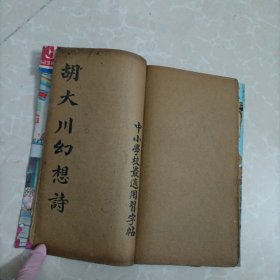 胡大川幻想詩
中小學校最適用習字帖